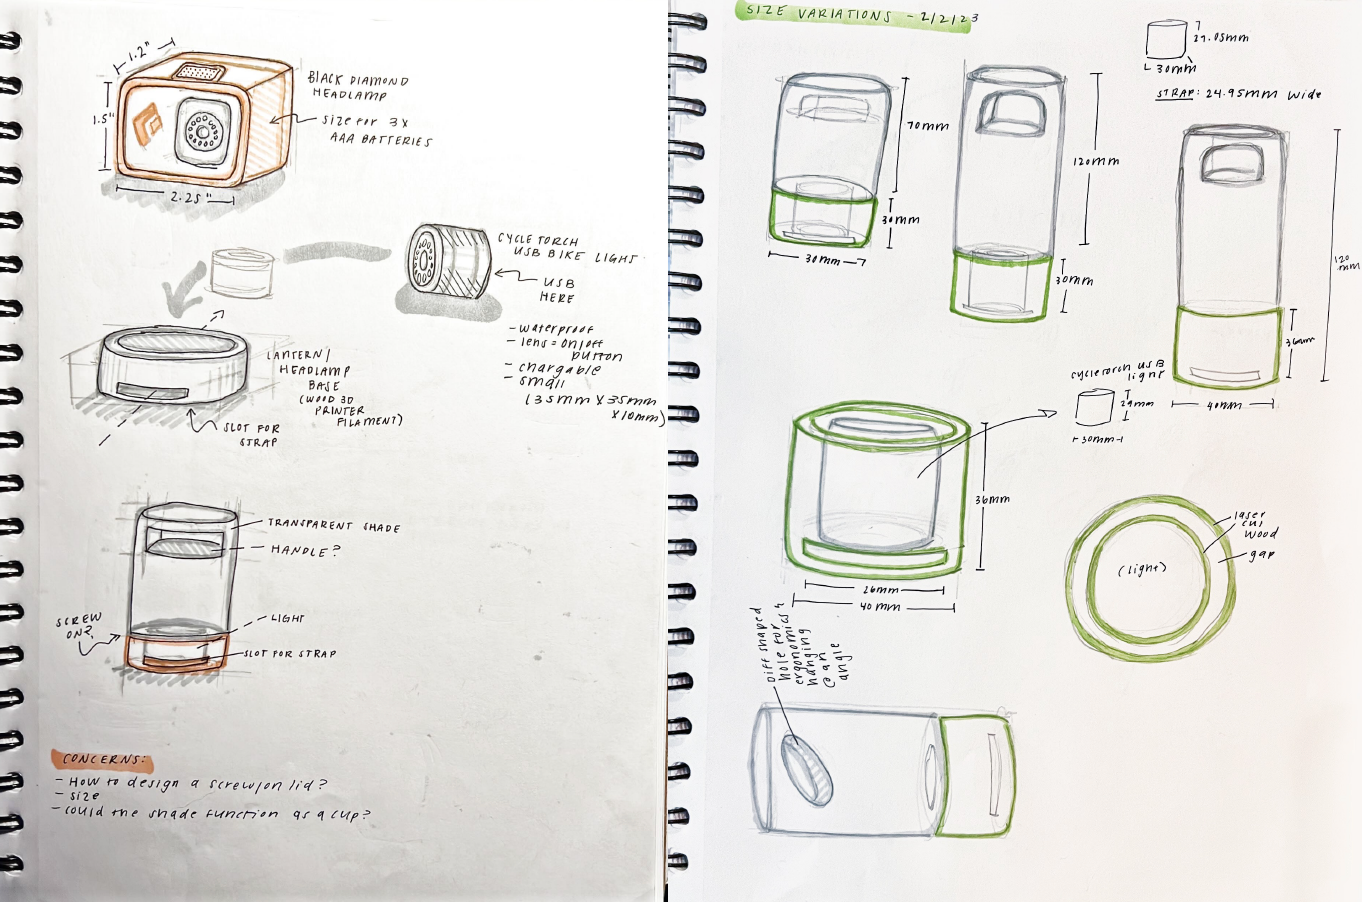 1.2"
1.5"
2.25"
BLACK DIAMOND
HEADLAMP
SIZE FOR 3x
AAA BATTERIES
CYCLE TORCH
USB BIKE LIGHT
USB
HERE
- waterproof
- lens = on/off
button
- chargable
- small
(35mm X 35mm
X 10mm)
LANTERN/
HEADLAMP
BASE
(WOOD 3D
PRINTER
FILAMENT)
SLOT FOR
STRAP
TRANSPARENT SHADE
HANDLE?
SCREW
ON?
LIGHT
SLOT FOR STRAP
CONCERNS:
- How to design a screw/on lid?
- size
- could the shade function as a cup?
SIZE VARIATIONS - 2/2/23
30mm
STRAP: 24.95mm wide
70mm
30mm
30mm
120mm
30mm
120
mm
36mm
40mm
cycletorch USB
light
29mm
30mm
36mm
26mm
40mm
laser
cut
wood
gap
(light)
Diff shaped
hole for
ergonomics &
hanging
@ an
angle